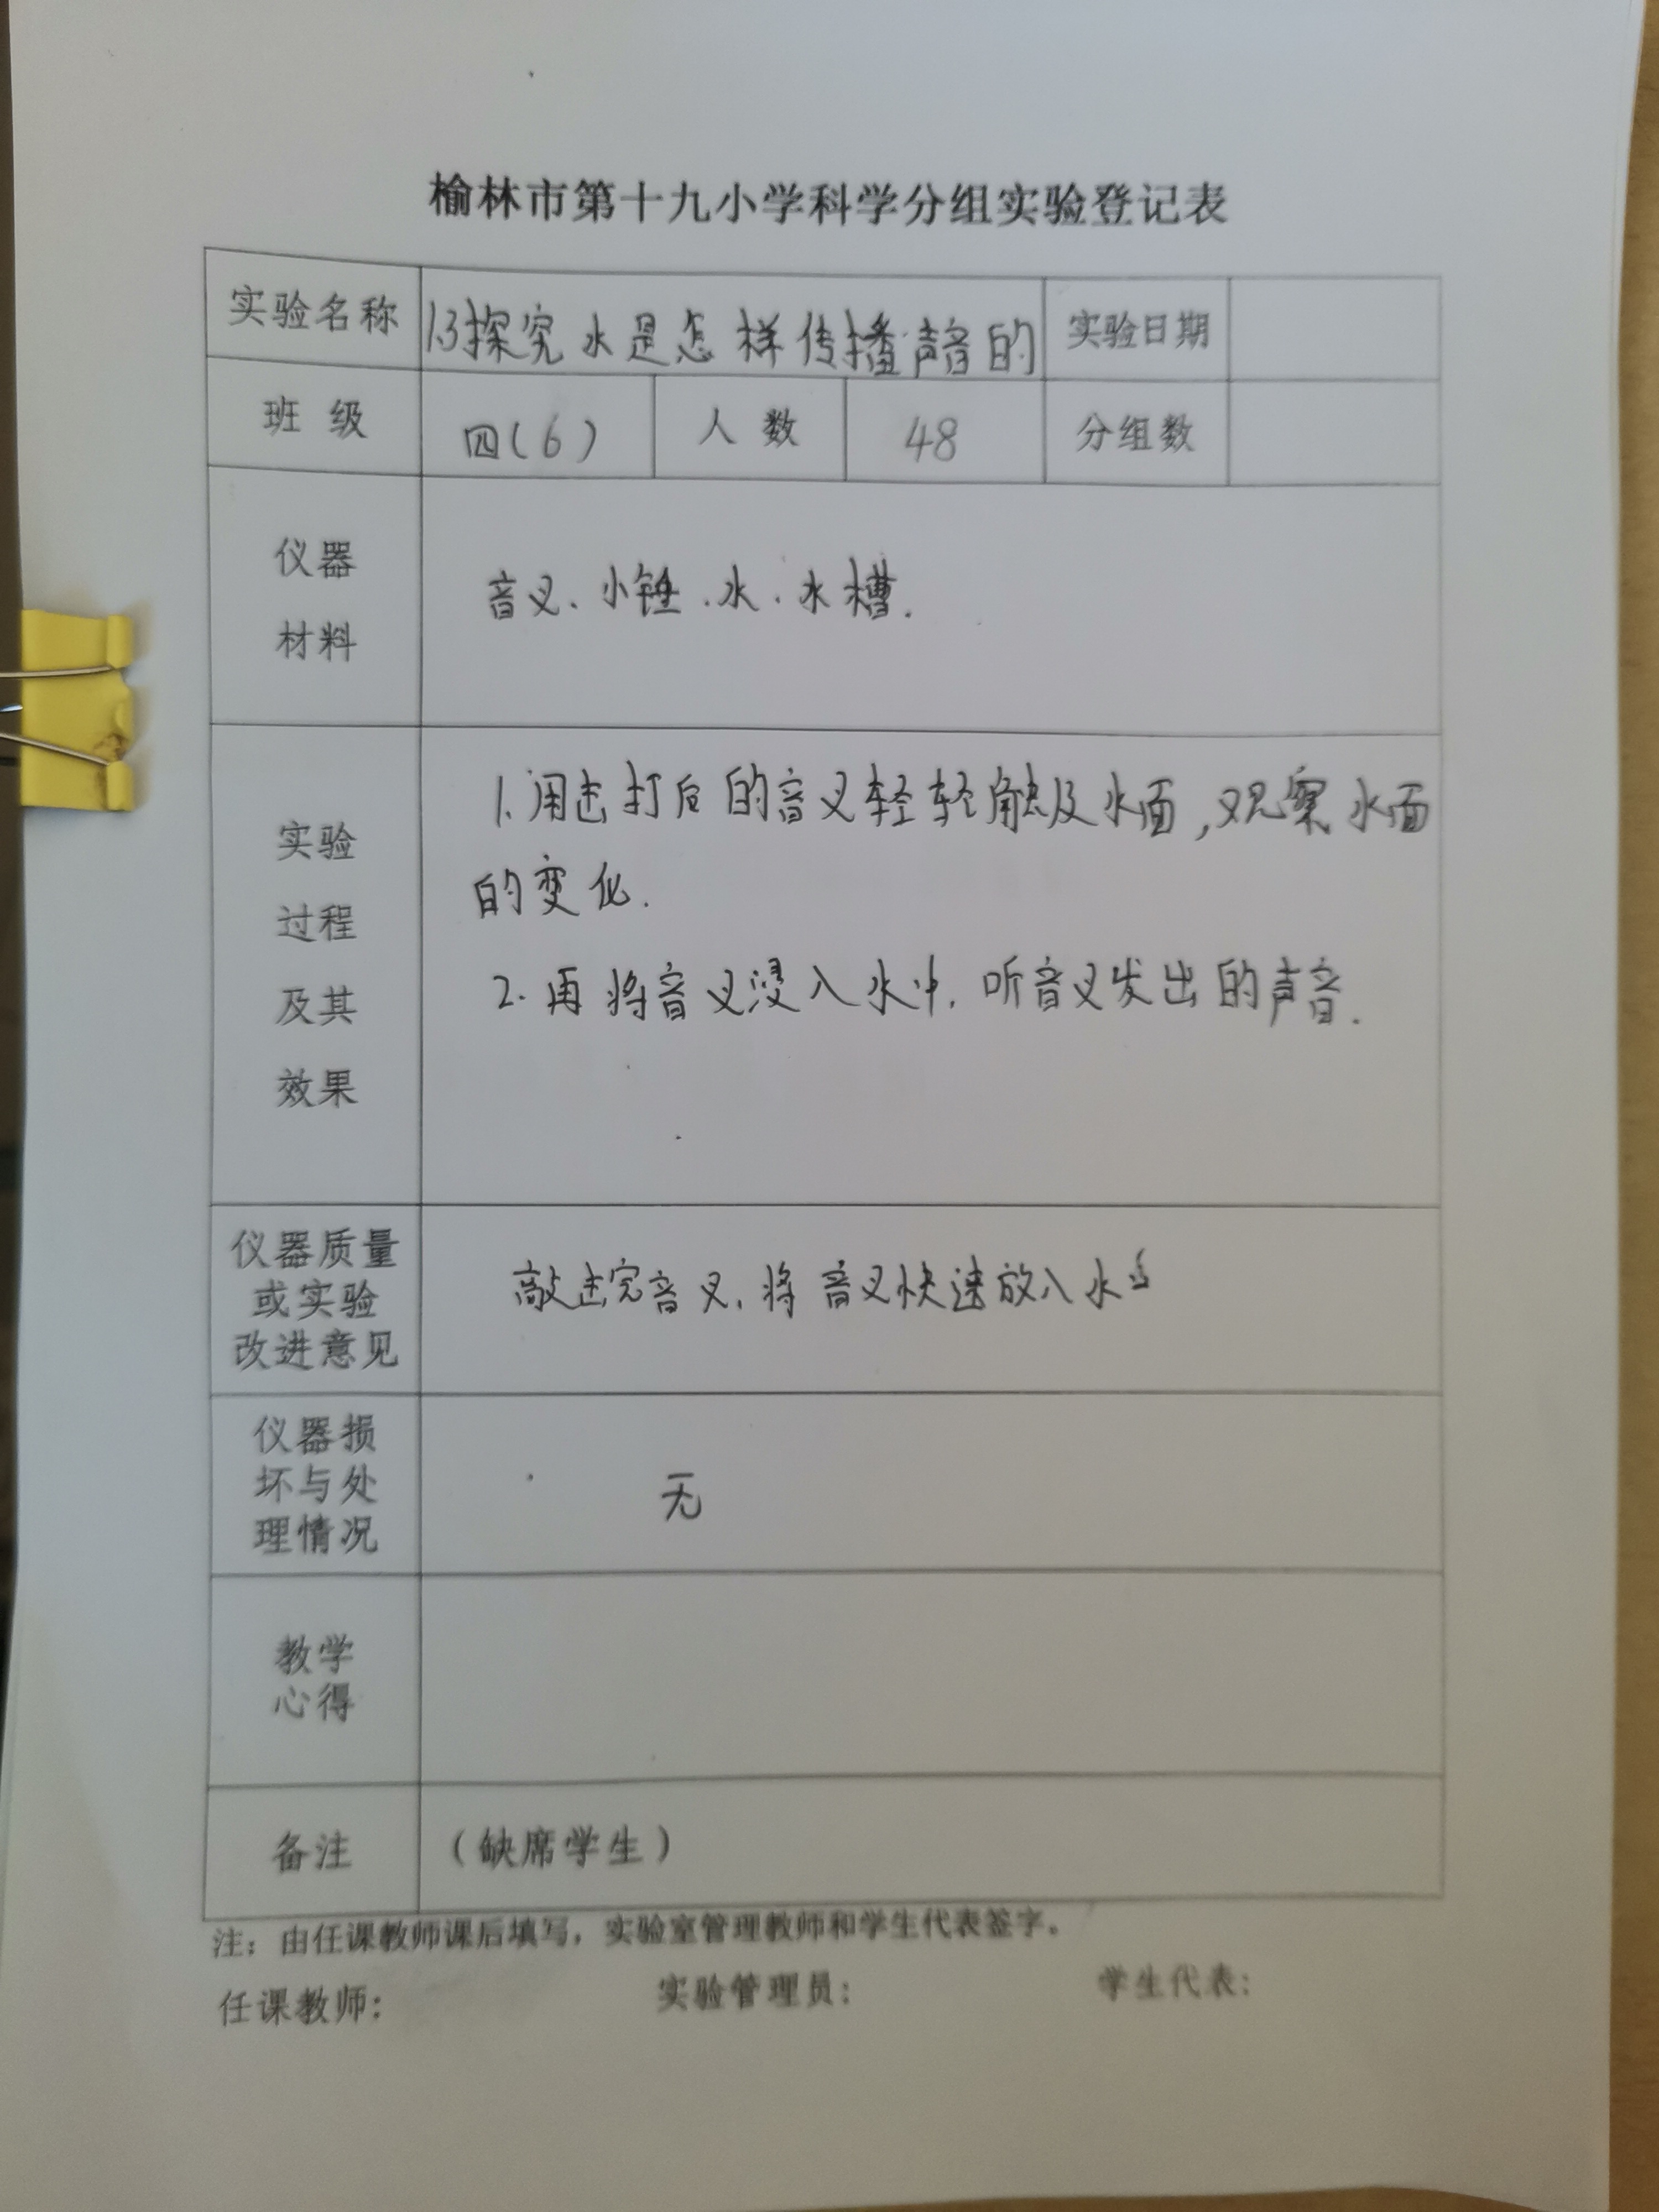 榆林市第十九小学科学分组实验登记表
实验名称 1.3探究水是怎样传播声音的 实验日期
班 级 四(6) 人 数 48 分组数
仪器
材料
音叉、小锤、水、水槽.
实验
过程
及其
效果
1.用击打后的音叉轻轻触及水面,观察水面
的变化.
2.再将音叉浸入水中,听音叉发出的声音.
仪器质量
或实验
改进意见
敲击完音叉,将音叉快速放入水
仪器损
坏与处
理情况
无
教学
心得
备注 (缺席学生)
注:由任课教师课后填写,实验室管理教师和学生代表签字。
任课教师: 实验管理员: 学生代表: